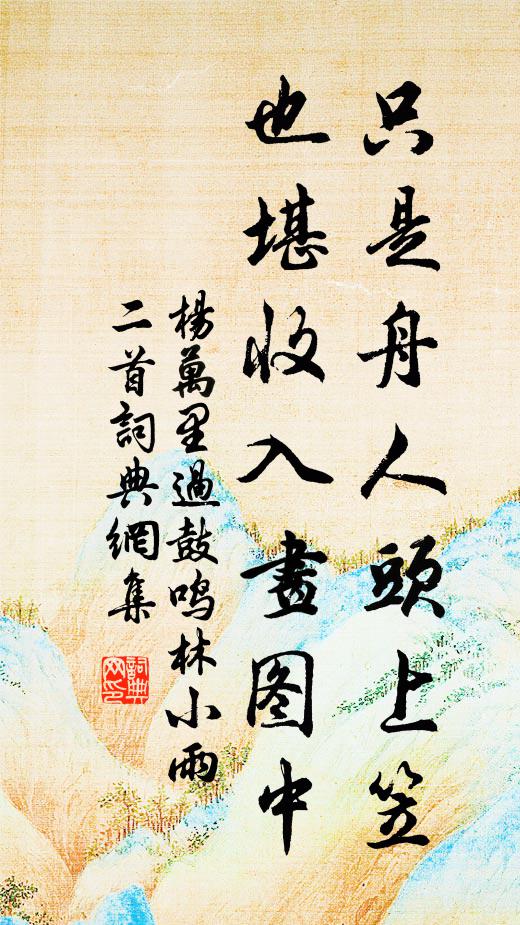 只是舟人頭上笠
也堪收入畫图中
楊萬里過鼓鸣林小雨
二首詞典網集
詞典网印